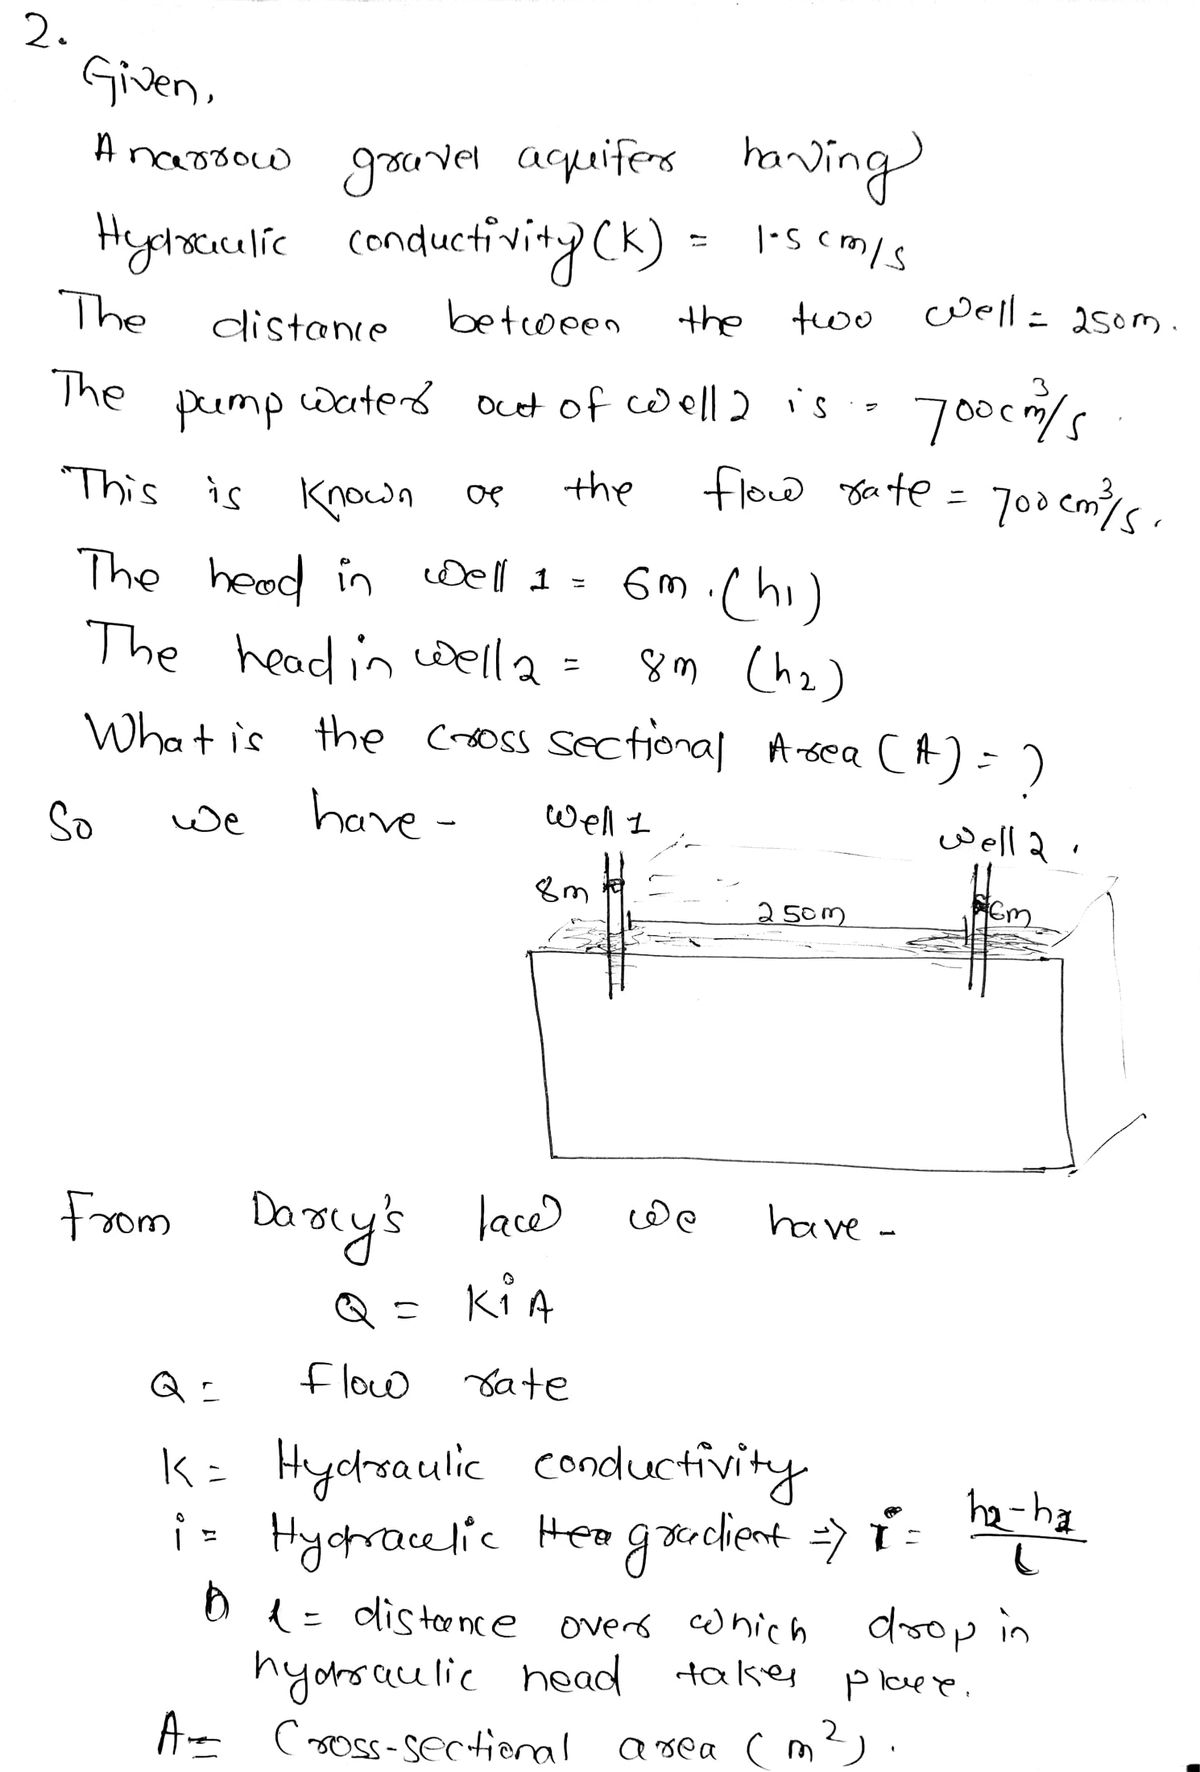 2.
Given,
A narrow gravel aquifer having
Hydraulic conductivity (K) = 1.5 cm/s
The distance between the two well = 250m.
The pump water out of well 2 is = 700 cm³/s
This is known as the flow rate = 700 cm³/s.
The head in well 1 = 6m. (h1)
The head in well 2 = 8m (h2)
What is the cross sectional Area (A) = ?
So we have -
Well 1
Well 2
8m
250m
6m
From Darcy's law we have -
Q = KiA
Q = flow rate
K = Hydraulic conductivity
i = Hydraulic gradient => i = h2-h1/l
l = distance over which drop in
hydraulic head takes place.
A = Cross-sectional area (m²).